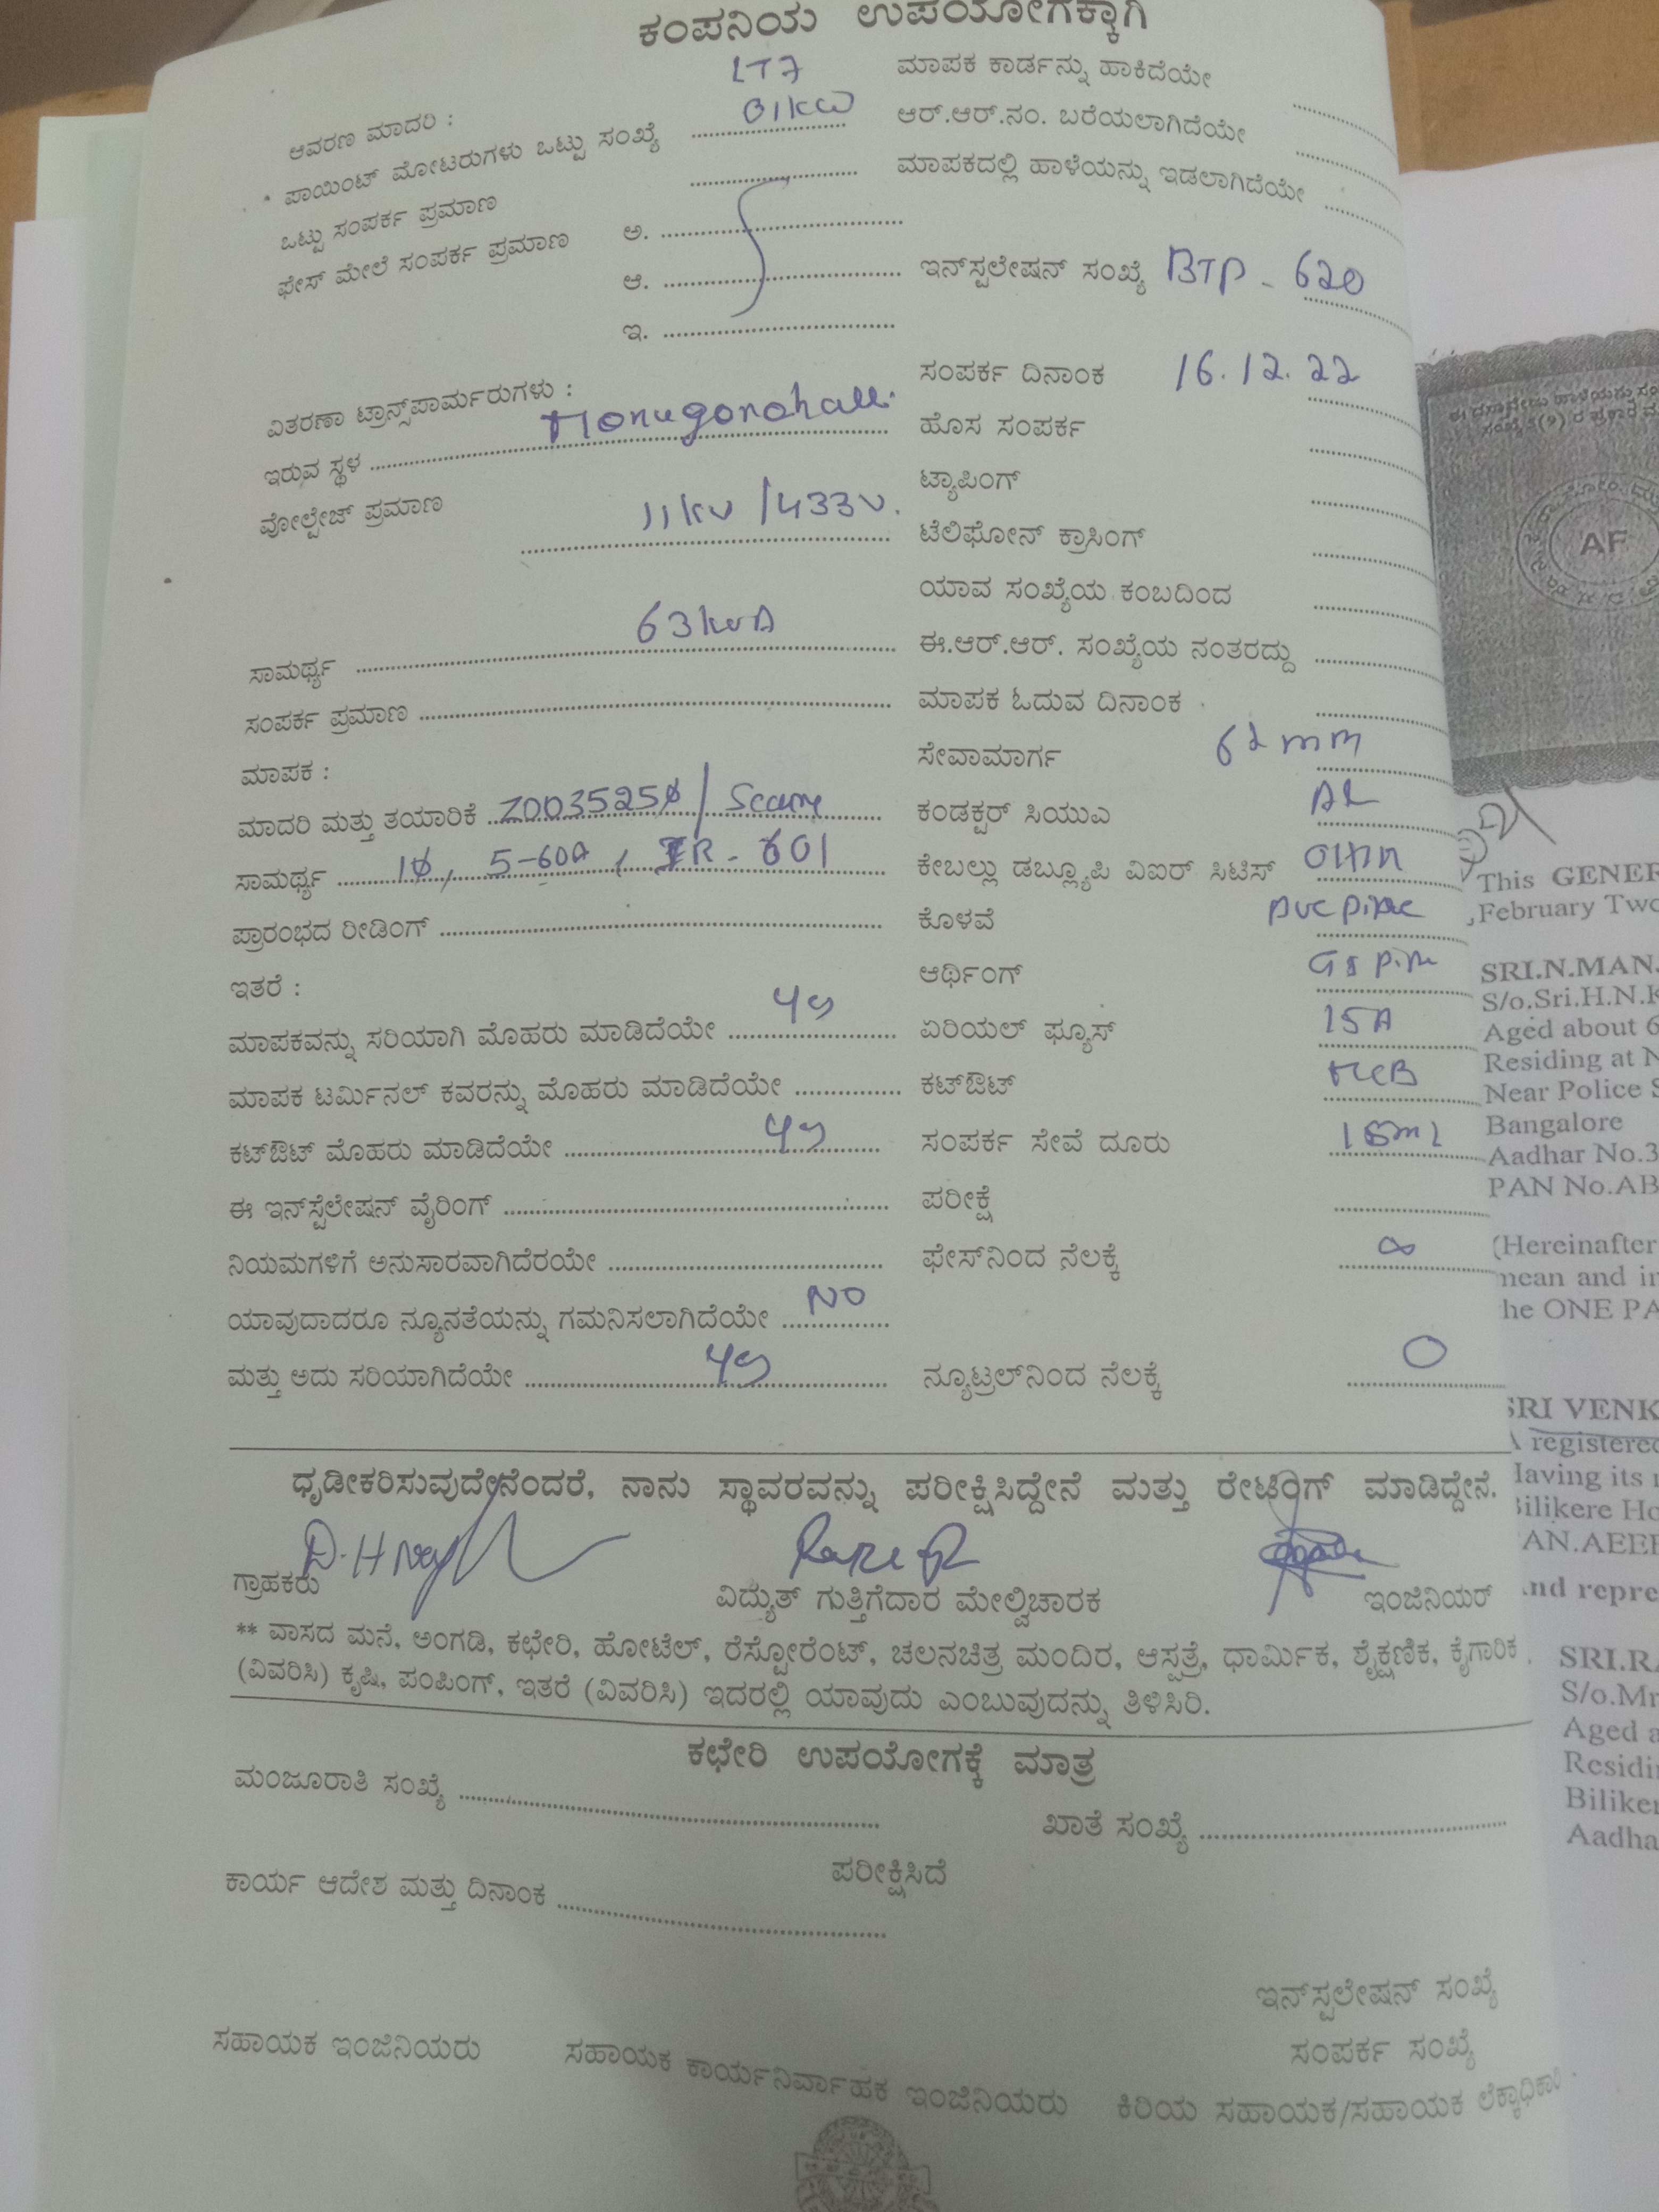 ಕಂಪನಿಯ ಉಪಯೋಗಕ್ಕಾಗಿ
LT7
ಆವರಣ ಮಾದರಿ :
ಪಾಯಿಂಟ್ ಮೋಟರುಗಳು ಒಟ್ಟು ಸಂಖ್ಯೆ 01KW
ಒಟ್ಟು ಸಂಪರ್ಕ ಪ್ರಮಾಣ
ಫೇಸ್ ಮೇಲೆ ಸಂಪರ್ಕ ಪ್ರಮಾಣ ಅ.
ಆ.
ಇ.
ವಿತರಣಾ ಟ್ರಾನ್ಸ್‌ಪಾರ್ಮರುಗಳು :
ಇರುವ ಸ್ಥಳ
ವೋಲ್ಟೇಜ್ ಪ್ರಮಾಣ 11kv/433v.
ಸಾಮರ್ಥ್ಯ 63kvA
ಸಂಪರ್ಕ ಪ್ರಮಾಣ
ಮಾಪಕ :
ಮಾದರಿ ಮತ್ತು ತಯಾರಿಕೆ
ಸಾಮರ್ಥ್ಯ 1ϕ, 5-60A, IR - 601
ಪ್ರಾರಂಭದ ರೀಡಿಂಗ್
ಇತರೆ :
ಮಾಪಕವನ್ನು ಸರಿಯಾಗಿ ಮೊಹರು ಮಾಡಿದೆಯೇ
ಮಾಪಕ ಟರ್ಮಿನಲ್ ಕವರನ್ನು ಮೊಹರು ಮಾಡಿದೆಯೇ
ಕಟ್‌ಔಟ್ ಮೊಹರು ಮಾಡಿದೆಯೇ
ಈ ಇನ್‌ಸ್ಟೆಲೇಷನ್ ವೈರಿಂಗ್
ನಿಯಮಗಳಿಗೆ ಅನುಸಾರವಾಗಿದೆರಯೇ
ಯಾವುದಾದರೂ ನ್ಯೂನತೆಯನ್ನು ಗಮನಿಸಲಾಗಿದೆಯೇ NO
ಮತ್ತು ಅದು ಸರಿಯಾಗಿದೆಯೇ
ಮಾಪಕ ಕಾರ್ಡನ್ನು ಹಾಕಿದೆಯೇ
ಆರ್.ಆರ್.ನಂ. ಬರೆಯಲಾಗಿದೆಯೇ
ಮಾಪಕದಲ್ಲಿ ಹಾಳೆಯನ್ನು ಇಡಲಾಗಿದೆಯೇ
ಇನ್‌ಸ್ಟಲೇಷನ್ ಸಂಖ್ಯೆ BTP - 620
ಸಂಪರ್ಕ ದಿನಾಂಕ 16.12.22
ಹೊಸ ಸಂಪರ್ಕ
ಟ್ಯಾಪಿಂಗ್
ಟೆಲಿಫೋನ್ ಕ್ರಾಸಿಂಗ್
ಯಾವ ಸಂಖ್ಯೆಯ ಕಂಬದಿಂದ
ಈ.ಆರ್.ಆರ್. ಸಂಖ್ಯೆಯ ನಂತರದ್ದು
ಮಾಪಕ ಓದುವ ದಿನಾಂಕ
ಸೇವಾಮಾರ್ಗ
ಕಂಡಕ್ಟರ್ ಸಿಯುಎ
ಕೇಬಲ್ಲು ಡಬ್ಲ್ಯೂಪಿ ವಿಐರ್ ಸಿಟಿಸ್
ಕೊಳವೆ PVC pipe
ಆರ್ಥಿಂಗ್ GI pipe
ಏರಿಯಲ್ ಫ್ಯೂಸ್ 15A
ಕಟ್‌ಔಟ್ MCB
ಸಂಪರ್ಕ ಸೇವೆ ದೂರು
ಪರೀಕ್ಷೆ
ಫೇಸ್‌ನಿಂದ ನೆಲಕ್ಕೆ ∞
ನ್ಯೂಟ್ರಲ್‌ನಿಂದ ನೆಲಕ್ಕೆ 0
ಧೃಡೀಕರಿಸುವುದೇನೆಂದರೆ, ನಾನು ಸ್ಥಾವರವನ್ನು ಪರೀಕ್ಷಿಸಿದ್ದೇನೆ ಮತ್ತು ರೇಟಿಂಗ್ ಮಾಡಿದ್ದೇನೆ.
ಗ್ರಾಹಕರು ವಿದ್ಯುತ್ ಗುತ್ತಿಗೆದಾರ ಮೇಲ್ವಿಚಾರಕ ಇಂಜಿನಿಯರ್
** ವಾಸದ ಮನೆ, ಅಂಗಡಿ, ಕಛೇರಿ, ಹೋಟೆಲ್, ರೆಸ್ಟೋರೆಂಟ್, ಚಲನಚಿತ್ರ ಮಂದಿರ, ಆಸ್ಪತ್ರೆ, ಧಾರ್ಮಿಕ, ಶೈಕ್ಷಣಿಕ, ಕೈಗಾರಿಕ
(ವಿವರಿಸಿ) ಕೃಷಿ, ಪಂಪಿಂಗ್, ಇತರೆ (ವಿವರಿಸಿ) ಇದರಲ್ಲಿ ಯಾವುದು ಎಂಬುವುದನ್ನು ತಿಳಿಸಿರಿ.
ಕಛೇರಿ ಉಪಯೋಗಕ್ಕೆ ಮಾತ್ರ
ಮಂಜೂರಾತಿ ಸಂಖ್ಯೆ
ಖಾತೆ ಸಂಖ್ಯೆ
ಪರೀಕ್ಷಿಸಿದೆ
ಕಾರ್ಯ ಆದೇಶ ಮತ್ತು ದಿನಾಂಕ
ಇನ್‌ಸ್ಟಲೇಷನ್ ಸಂಖ್ಯೆ
ಸಂಪರ್ಕ ಸಂಖ್ಯೆ
ಸಹಾಯಕ ಇಂಜಿನಿಯರು ಸಹಾಯಕ ಕಾರ್ಯನಿರ್ವಾಹಕ ಇಂಜಿನಿಯರು ಕಿರಿಯ ಸಹಾಯಕ/ಸಹಾಯಕ ಲೆಕ್ಕಾಧಿಕಾರಿ
AF
This GENER
February Two
SRI.N.MAN.
S/o.Sri.H.N.K
Aged about 6
Residing at N
Near Police S
Bangalore
Aadhar No.3
PAN No.AB
(Hereinafter
mean and in
he ONE PA
SRI VENK
A registered
Having its r
Bilikere Ho
AN.AEEE
And repre
SRI.RA
S/o.Mr
Aged a
Residi
Biliker
Aadha